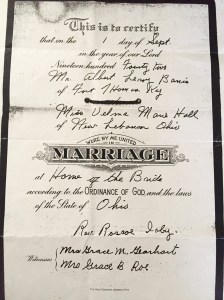 This is to certify
that on the 1 day of Sept.
in the year of our Lord
Nineteen hundred Fourty two
Mr. Albert Leroy Banis
of Fort Thomas Ky
and
Miss Velma Marie Hall
of New Lebanon Ohio
WERE BY ME UNITED
IN
MARRIAGE
at Home of the Bride
according to the ORDINANCE OF GOD, and the laws
of the State of Ohio
Rev. Roscoe
Witnesses
Mrs Grace M. Gearhart
Mrs Grace B Roe